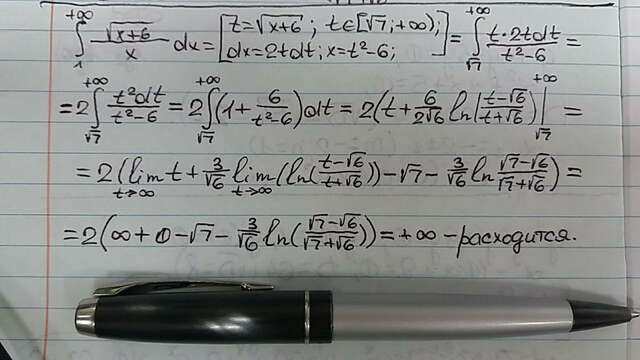 ∫₁^{+∞} √(x+6)/x dx = [t=√(x+6); t∈[√7;+∞); dx=2tdt; x=t²-6;] = ∫_{√7}^{+∞} t·2tdt/(t²-6) =
=2∫_{√7}^{+∞} t²dt/(t²-6) = 2∫_{√7}^{+∞} (1+6/(t²-6))dt = 2(t+6/(2√6) ln|(t-√6)/(t+√6)|)|_{√7}^{+∞} =
=2(lim_{t→∞} t+3/√6 lim_{t→∞}(ln((t-√6)/(t+√6)))-√7-3/√6 ln (√7-√6)/(√7+√6)) =
=2(∞+0-√7-3/√6 ln((√7-√6)/(√7+√6)))=+∞ -расходится.